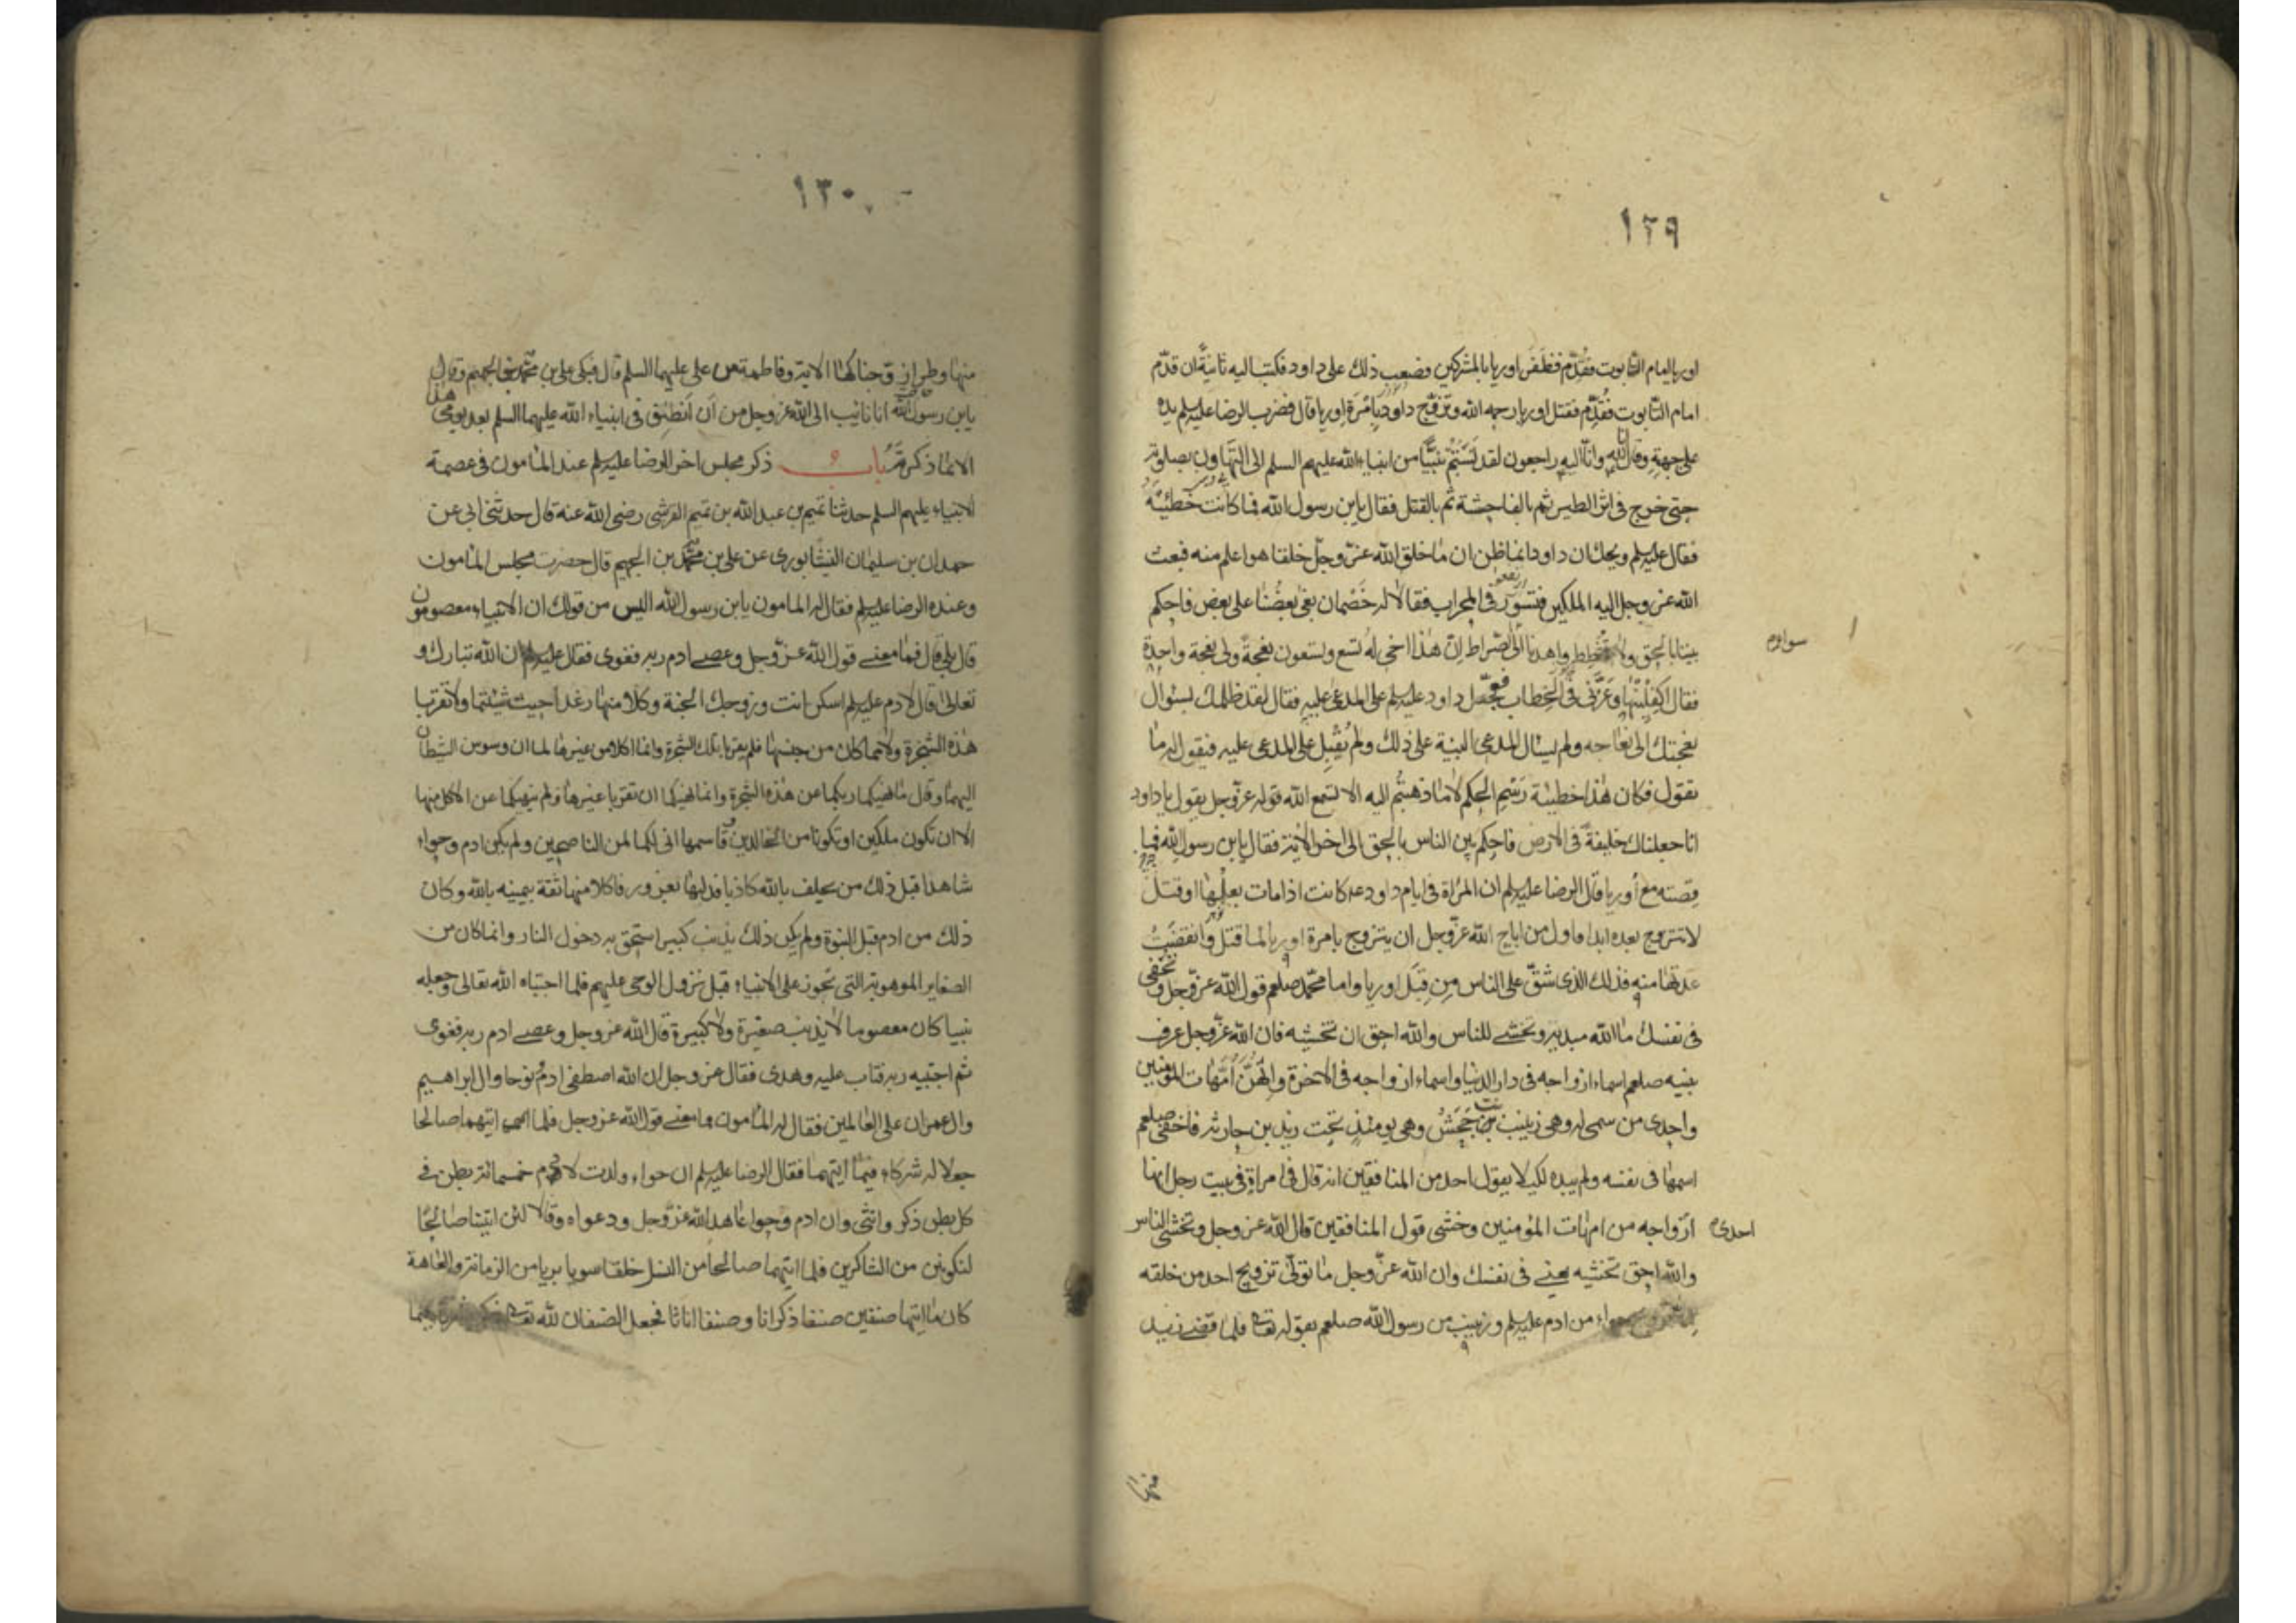 ١٢٩
اوريا امام التابوت فقدّم فظفر اوريا بالمشركين فصعب ذلك على داود فكتب اليه ثانيةً ان قدّم
امام التابوت فقُدّم فقتل اوريا رحمه الله وتزوّج داود بامرَة اوريا قال فضرب الرضا عليه السلم يده
على جبهته وقال انا لله وانا اليه راجعون لقد نسبتم نبيّاً من انبياء الله عليهم السلم الى التهاون بصلوته
حتى خرج في اثر الطير ثم بالفاحشة ثم بالقتل فقال يابن رسول الله فما كانت خطيئته
فقال عليه السلم ويحك ان داود انما ظن ان ما خلق الله عزّ وجلّ خلقا هو اعلم منه فبعث
الله عز وجل اليه الملكين فتسورا في المحراب فقالا له خَصْمان بغى بعضُنا على بعض فاحكم
بيننا بالحق ولا تشطط واهدنا الى الصراط انّ هذا اخى له تسع وتسعون نعجةً ولى نعجة واحدة
سواء م
فقال اكفلنيها وعزّنى فى الخطاب فعجّل داود عليه السلم على المدعى عليه فقال لقد ظلمك بسؤال
نعجتك الى نعاجه ولم يسال المدعى البينة على ذلك ولم يُقبِل على المدعى عليه فيقول له ما
تقول فكان هذا خطيئة رَسْمِ الحكم لا ما ذهبتُم اليه الا تسمع الله قوله عز وجل يقول يا داود
انا جعلناك خليفةً فى الارض فاحكم بين الناس بالحق الى اخر الاية فقال يابن رسول الله فما
قصته مع أوريا قال الرضا عليه السلم ان المراة فى ايام داود ع كانت اذا مات بعلُها او قتل
لا تتزوج بعده ابدا فاول من اباح الله عزّ وجل ان يتزوج بامرة اوريا لما قتل وانقضَتْ
عدتها منه فذلك الذى شقّ على الناس مِن قِبَل اوريا واما محمّد صلعم قول الله عزّ وجل وتخفى
فى نفسك ما الله مبديه وتخشى الناس والله احق ان تخشيه فان الله عزّ وجل عرف
نبيه صلعم اسماء ازواجه فى دار الدنيا واسماء ازواجه فى الاخرة وانهُنّ امّهات المؤمنين
واحدى من سمى له وهى زينب بنت جَحَشْ وهى يومئذٍ تحت زيد بن حارثه فاخفى صلعم
اسمها فى نفسه ولم يبده لكيلا يقول احد من المنافقين انه قال فى امراة فى بيت رجل انها
احدى م ازواجه من امهات المؤمنين وخشى قول المنافقين قال الله عز وجل وتخشى الناس
والله احق تخشيه يعنى فى نفسك وان الله عزّ وجل ما تولّى تزويج احد من خلقه
حواء من ادم عليه السلم وزينب من رسول الله صلعم بقوله تعالى فلما قضى زيد
منها
١٣٠
منها وطرا زوّجناكها الاية وفاطمة من على عليهما السلم قال فبكى على بن محمّد بن الجهم وقال
يابن رسول الله انا تائب الى الله عز وجل من اَن اَنطِق فى انبياء الله عليهما السلم بعد يومى هذا
الا بما ذكرتَه باب ذكر مجلس اخر للرضا عليه السلم عند المامون فى عصمة
الانبياء عليهم السلم حدثنا تميم بن عبد الله بن تميم القرشى رضى الله عنه قال حدثنى ابى عن
حمدان بن سليمان النيشابورى عن على بن محمّد بن الجهم قال حضرت مجلس المامون
وعنده الرضا عليه السلم فقال له المامون يابن رسول الله اليس من قولك ان الانبياء معصومون
قال بلى قال فما معنى قول الله عزّ وجل وعصى ادم ربه فغوى فقال عليه السلم ان الله تبارك و
تعالى قال لادم عليه السلم اسكن انت وزوجك الجنة وكلا منها رغدا حيث شئتما ولا تقربا
هذه الشجرة ولا مما كان من جنسها فلم يقربا تلك الشجرة وانما اكلا من غيرها لما ان وسوس الشيطان
اليهما وقال ما نهيكما ربكما عن هذه الشجرة وانما نهيكما ان تقربا غيرها ولم ينهكما عن الاكل منها
الا ان تكونا ملكين او تكونا من الخالدين وقاسمهما انى لكما لمن الناصحين ولم يكن ادم وحواء
شاهدا قبل ذلك من يحلف بالله كاذبا فدليهما بغرور فاكلا منها ثقة بيمينه بالله وكان
ذلك من ادم قبل النبوة ولم يكن ذلك بذنب كبير استحق به دخول النار وانما كان من
الصغاير الموهوبة التى تجوز على الانبياء قبل نزول الوحى عليهم فلما اجتباه الله تعالى وجعله
نبيا كان معصوما لا يذنب صغيرة ولا كبيرة قال الله عز وجل وعصى ادم ربه فغوى
ثم اجتبيه ربه فتاب عليه وهدى فقال عز وجل ان الله اصطفى ادم ونوحا وال ابراهيم
وال عمران على العالمين فقال له المامون فما معنى قول الله عز وجل فلما اتيهما صالحا
جعلا له شركاء فيما اتيهما فقال الرضا عليه السلم ان حواء ولدت لادم خمسمائة بطن فى
كل بطن ذكر وانثى وان ادم وحوا عاهدا الله عزّ وجل ودعواه وقالا لئن اتيتنا صالحًا
لنكونن من الشاكرين فلما اتيهما صالحا من النسل خلقا سويا بريا من الزمانة والعاهة
كان ما اتيهما صنفين صنفا ذكرانا وصنفا اناثا فجعل الصنفان لله تعالى